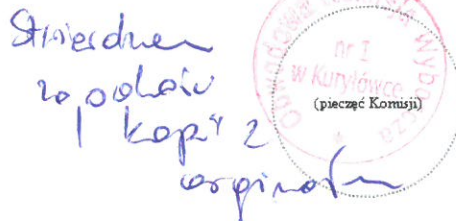 Stwierdzam
zgodność
kopii z
orginałem
Obwodowa Komisja Wyborcza
nr I
w Kuryłówce
(pieczęć Komisji)